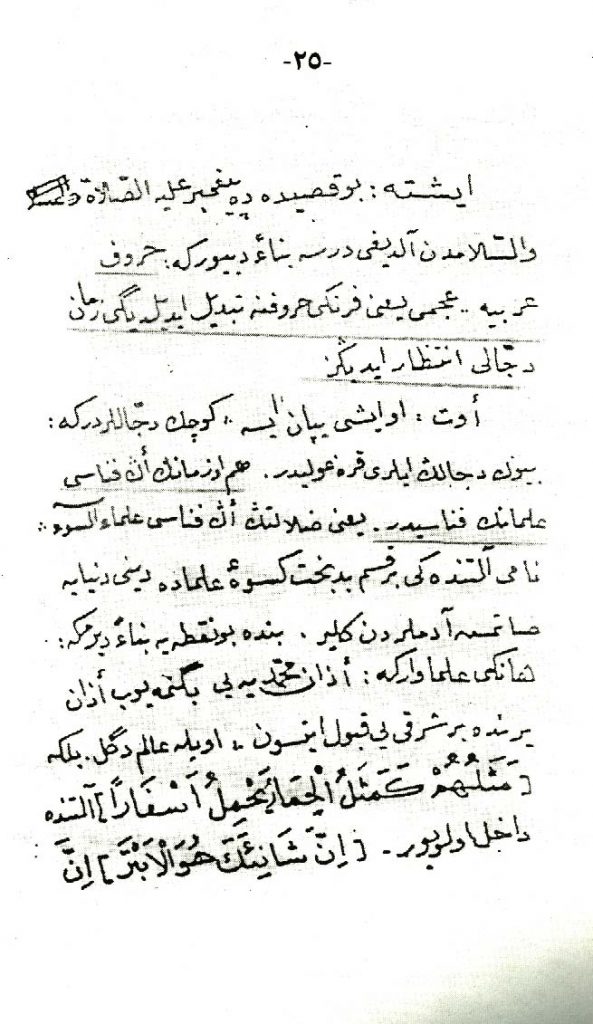 -٢٥-
ایشته : بو قصیده ده پیغمبر علیه الصّلاة
والسّلامدن آلدیغی درسه بناءً دییور که: حروف
عربیه .. عجمی یعنی فرنکی حروفنه تبدیل ایدیلدیگی زمان
دجّالی انتظار ایدیڭز
أوت : او ایشی یاپان ایسه ، کوچك دجّاللردر که :
بیوك دجالك ایلری قره غولیدر . هم او زمانك أڭ فناسی
علمانك فناسیدر . یعنی ضلالتڭ أڭ فناسی علماء السوء
نامی آلتنده کی بر قسم بدبخت کسوۀ علماده دینی دنیایه
صاتمسه آدملردن کلیر . بنده بو نقطه یه بناءً دیرمکه :
هانکی علما وارکه : أذان محمّدیه یی بگنمه یوب أذان
یرنده بر شرقی یی قبول ایتسون ، اویله عالم دگل . بلکه
[مَثَلُهُمْ كَمَثَلِ الْحِمَارِ يَحْمِلُ أَسْفَارًا] آلتنده
داخل اولویور . [اِنَّ شَانِئَكَ هُوَ الْاَبْتَرُ] اِنَّ